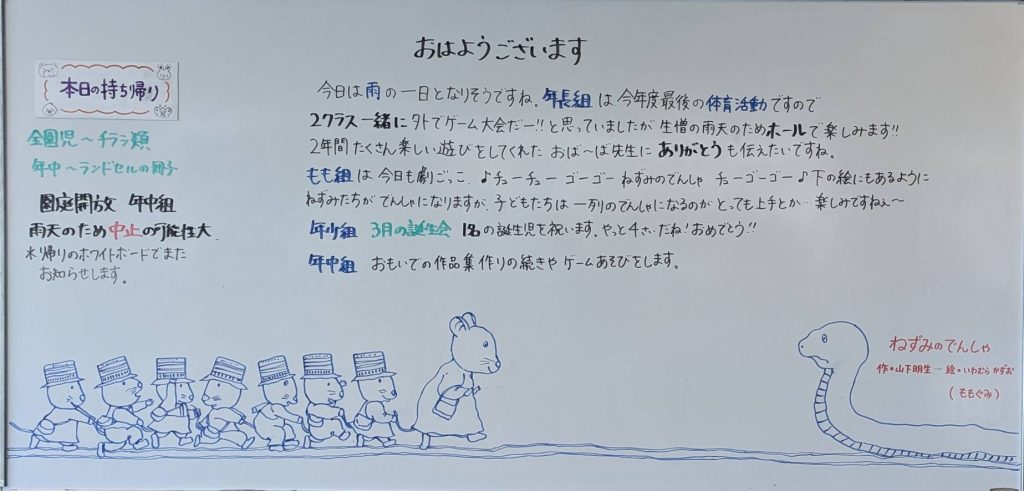 おはようございます
本日の持ち帰り
全園児～チラシ類
年中～ランドセルの冊子
園庭開放 年中組
雨天のため中止の可能性大.
※降帰りのホワイトボードでまた
お知らせします。
今日は雨の一日となりそうですね。年長組は今年度最後の体育活動ですので
2クラス一緒に外でゲーム大会だー!!と思っていましたが生憎の雨天のためホールで楽しみます!!
2年間たくさん楽しい遊びをしてくれたおば～ば先生にありがとうも伝えたいですね。
もも組は今日も劇ごっこ.♪チューチューゴーゴーねずみのでんしゃ チューゴーゴー♪下の絵にもあるように
ねずみたちがでんしゃになりますが、子どもたちは一列のでんしゃになるのがとっても上手とか…楽しみですねぇ～
年少組 3月の誕生会 1名の誕生児を祝います。やっと4さいだね!おめでとう!!
年中組 おもいでの作品集作りの続きやゲームあそびをします。
ねずみのでんしゃ
作・山下明生 ― 絵・いわむらかずお
(ももぐみ)